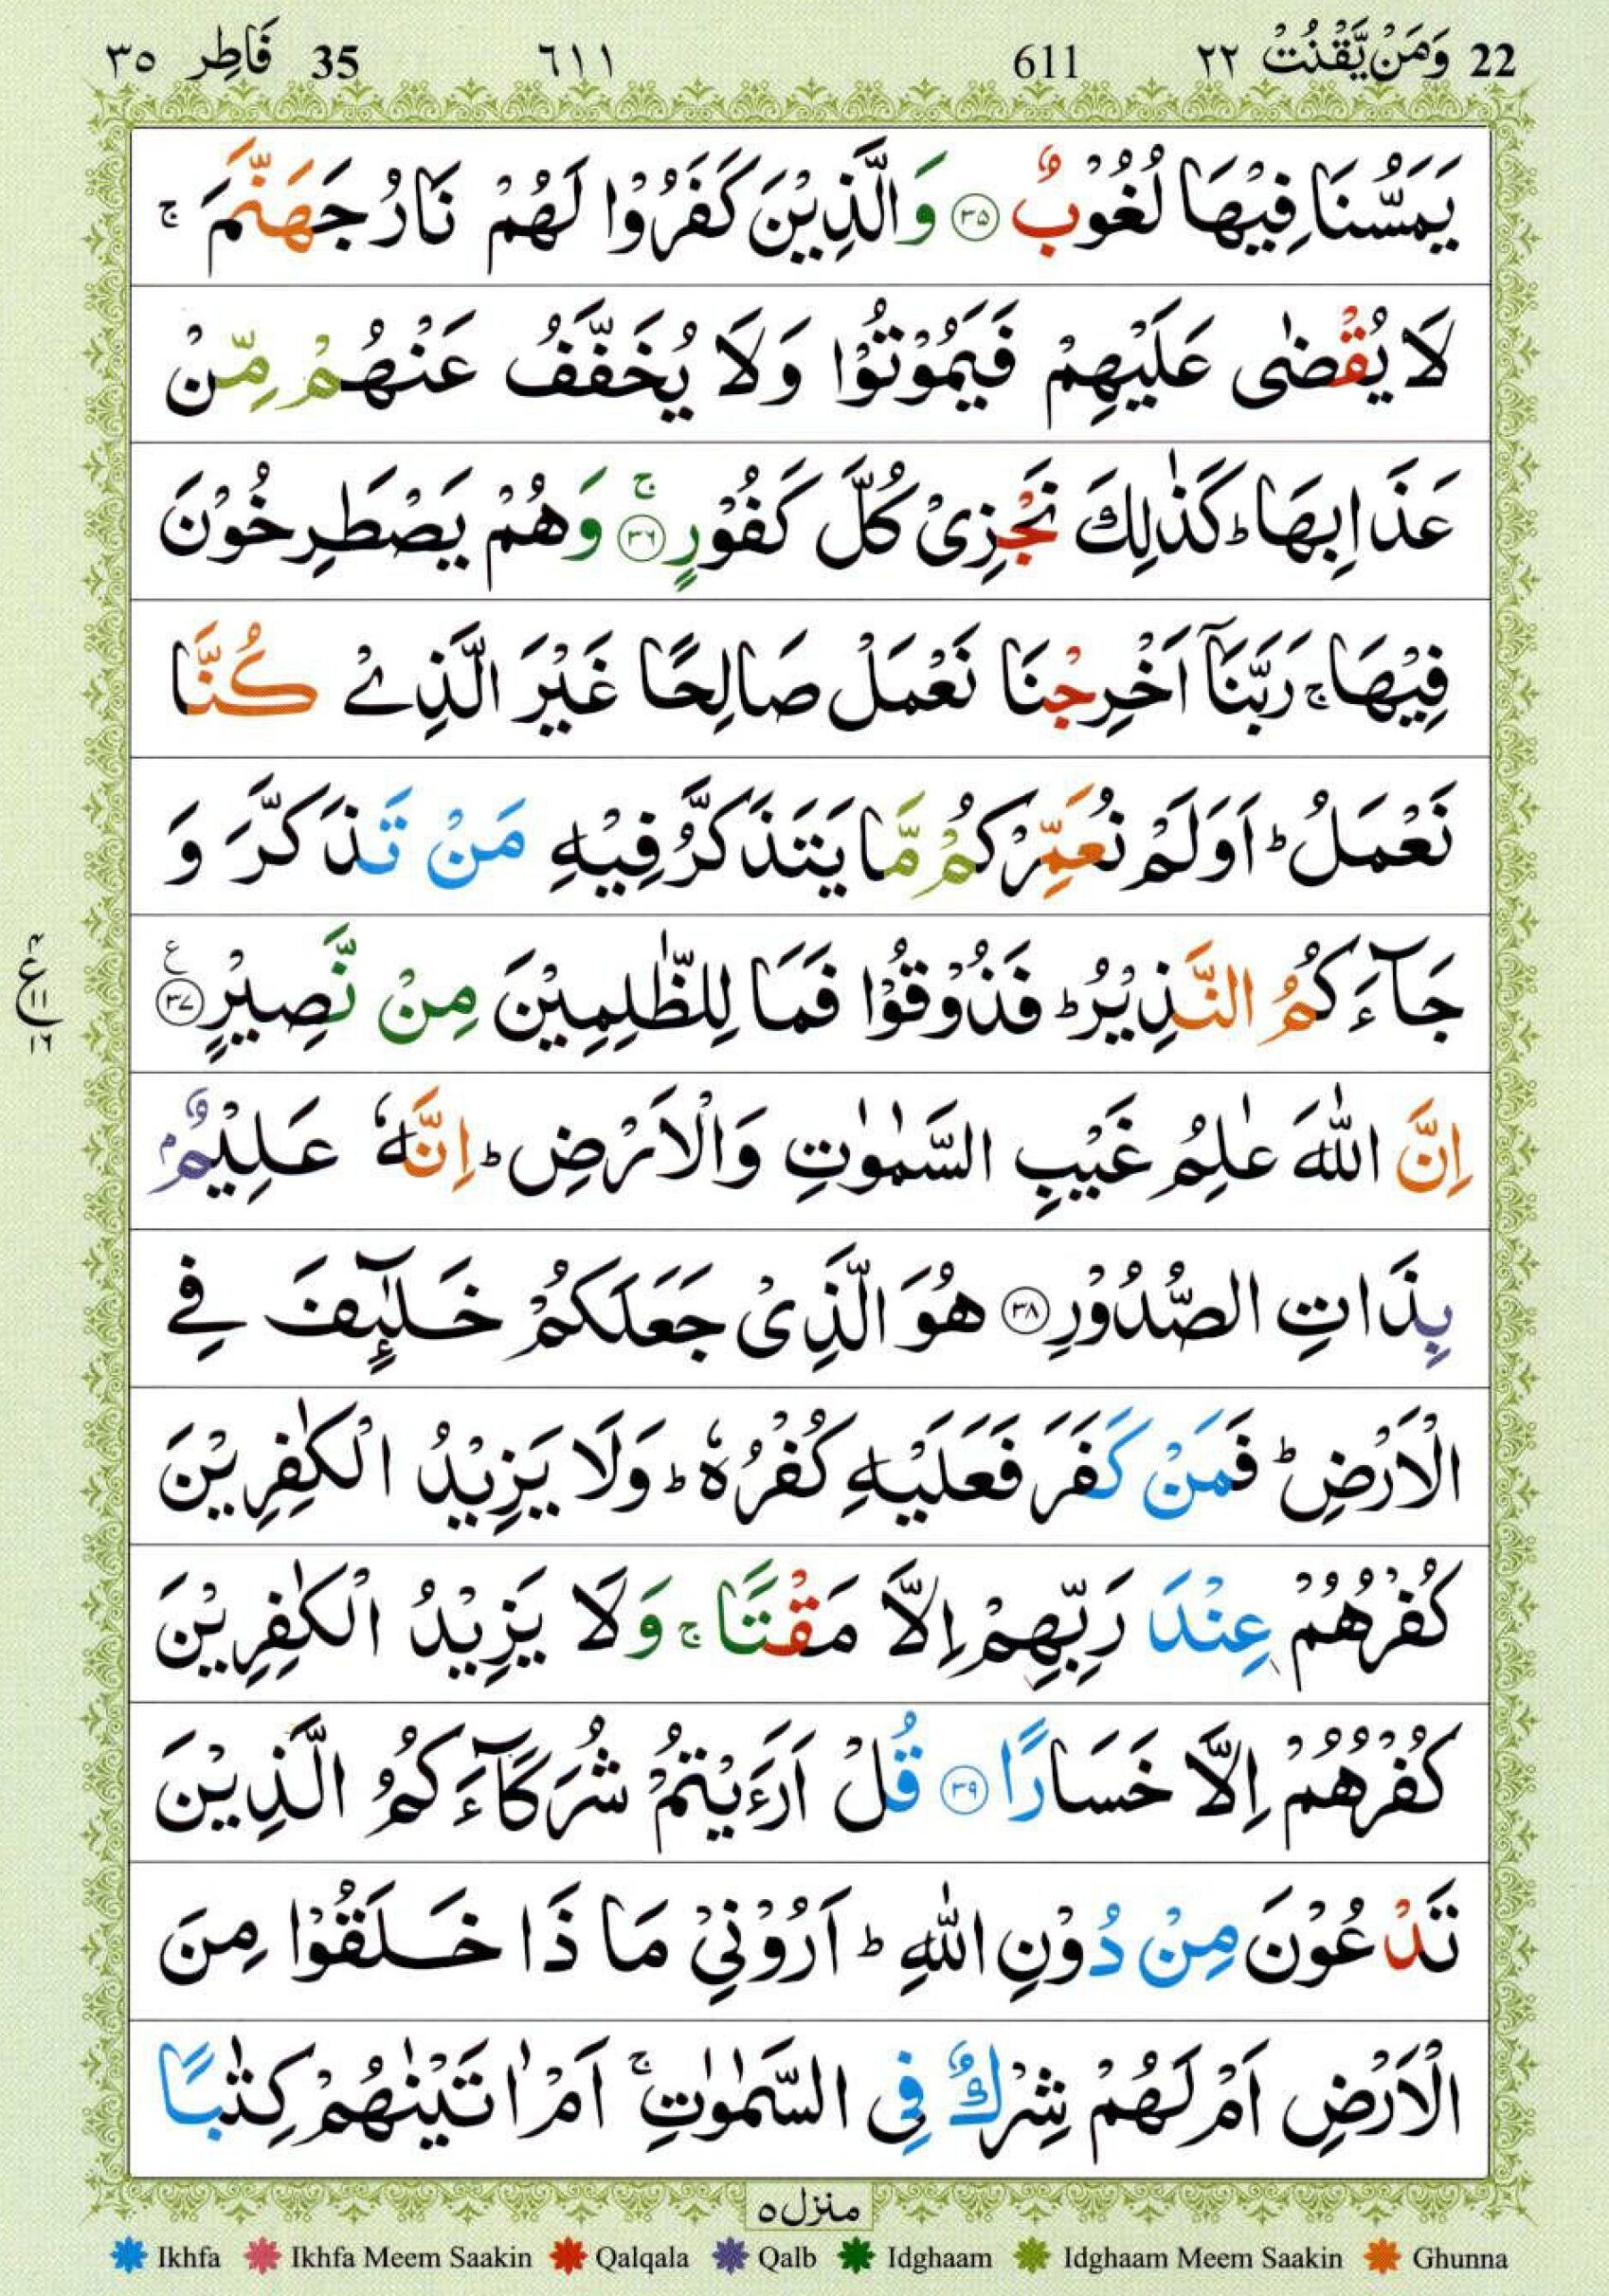 22 وَمَنْ يَّقْنُتْ ٢٢ 611 ٦١١ 35 فَاطِر ٣٥
يَمَسُّنَا فِيْهَا لُغُوْبٌ ﴿٣٥﴾ وَالَّذِيْنَ كَفَرُوْا لَهُمْ نَارُ جَهَنَّمَ ۚ
لَا يُقْضٰى عَلَيْهِمْ فَيَمُوْتُوْا وَلَا يُخَفَّفُ عَنْهُمْ مِّنْ
عَذَابِهَا ؕ كَذٰلِكَ نَجْزِىْ كُلَّ كَفُوْرٍ ۚ﴿٣٦﴾ وَهُمْ يَصْطَرِخُوْنَ
فِيْهَا ۚ رَبَّنَاۤ اَخْرِجْنَا نَعْمَلْ صَالِحًا غَيْرَ الَّذِىْ كُنَّا
نَعْمَلُ ؕ اَوَلَمْ نُعَمِّرْكُمْ مَّا يَتَذَكَّرُ فِيْهِ مَنْ تَذَكَّرَ وَ
جَآءَكُمُ النَّذِيْرُ ؕ فَذُوْقُوْا فَمَا لِلظّٰلِمِيْنَ مِنْ نَّصِيْرٍ ﴿٣٧﴾ ع
٤ ع ١١ ١٦
اِنَّ اللّٰهَ عٰلِمُ غَيْبِ السَّمٰوٰتِ وَالْاَرْضِ ؕ اِنَّهٗ عَلِيْمٌۢ
بِذَاتِ الصُّدُوْرِ ﴿٣٨﴾ هُوَ الَّذِىْ جَعَلَكُمْ خَلٰٓئِفَ فِى
الْاَرْضِ ؕ فَمَنْ كَفَرَ فَعَلَيْهِ كُفْرُهٗ ؕ وَلَا يَزِيْدُ الْكٰفِرِيْنَ
كُفْرُهُمْ عِنْدَ رَبِّهِمْ اِلَّا مَقْتًا ۚ وَلَا يَزِيْدُ الْكٰفِرِيْنَ
كُفْرُهُمْ اِلَّا خَسَارًا ﴿٣٩﴾ قُلْ اَرَءَيْتُمْ شُرَكَآءَكُمُ الَّذِيْنَ
تَدْعُوْنَ مِنْ دُوْنِ اللّٰهِ ؕ اَرُوْنِيْ مَا ذَا خَلَقُوْا مِنَ
الْاَرْضِ اَمْ لَهُمْ شِرْكٌ فِى السَّمٰوٰتِ ۚ اَمْ اٰتَيْنٰهُمْ كِتٰبًا
منزل ٥
Ikhfa Ikhfa Meem Saakin Qalqala Qalb Idghaam Idghaam Meem Saakin Ghunna